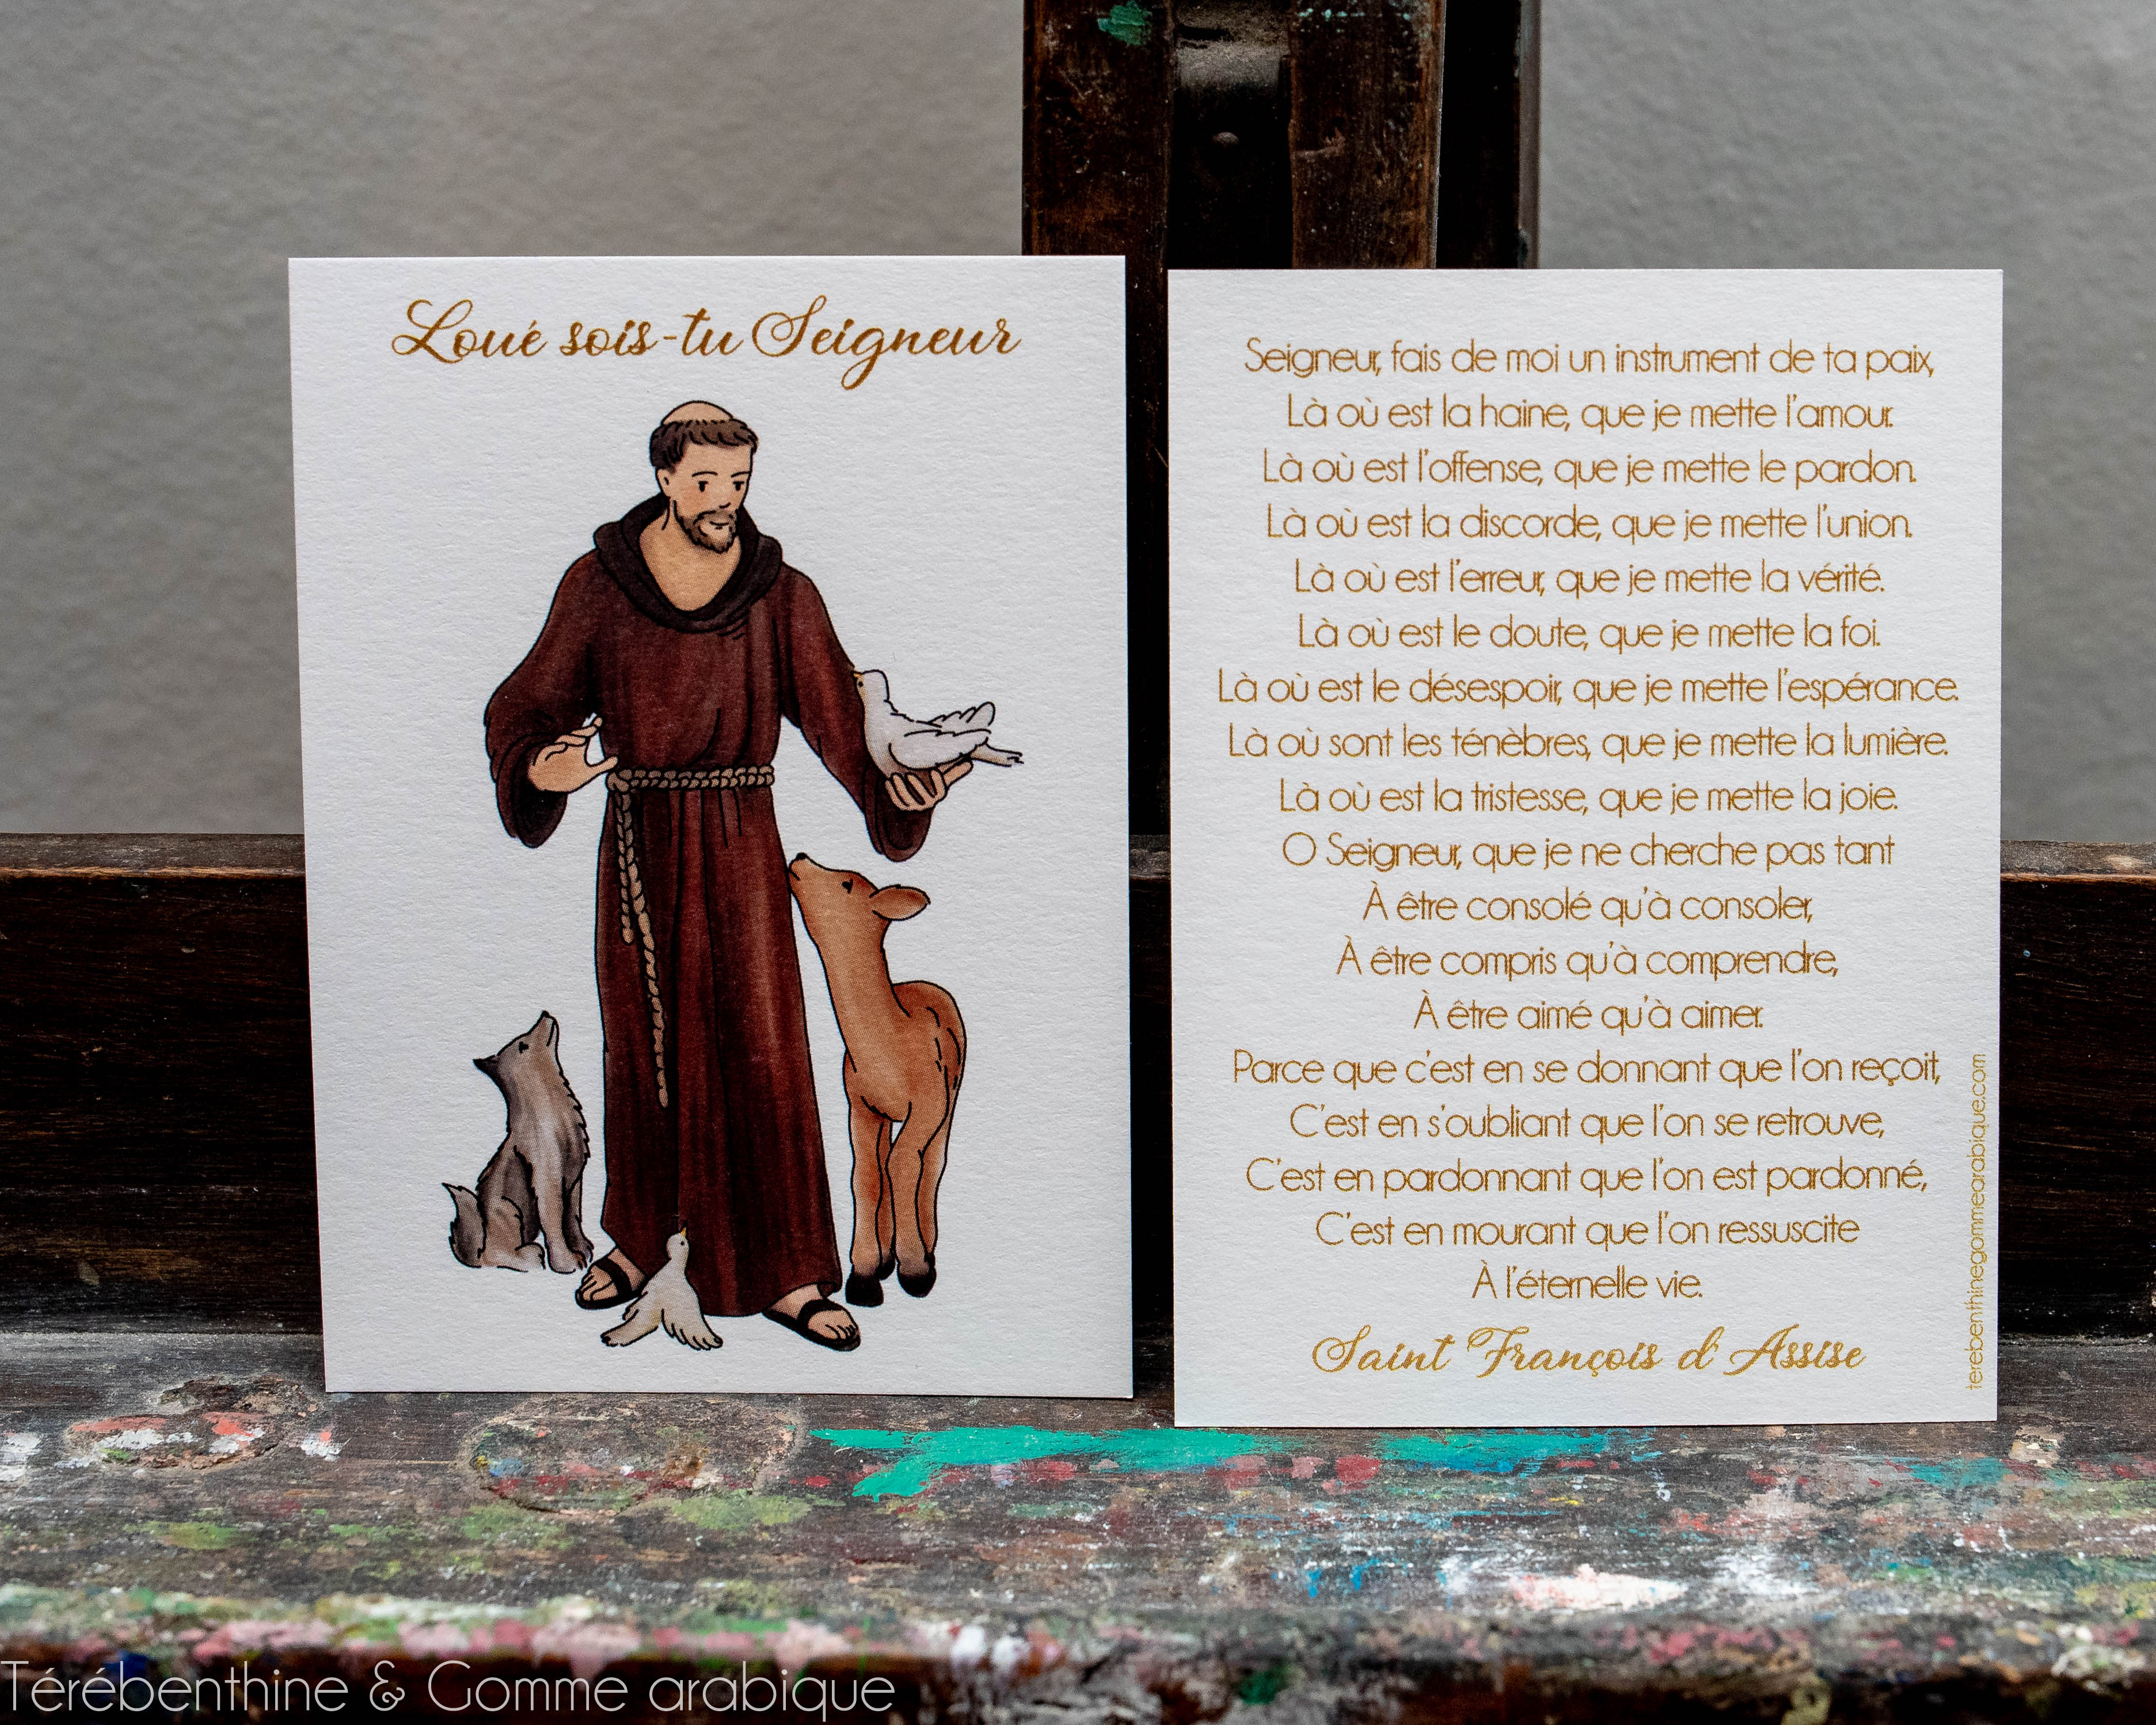 Loué sois-tu Seigneur
Seigneur, fais de moi un instrument de ta paix,
Là où est la haine, que je mette l'amour.
Là où est l'offense, que je mette le pardon.
Là où est la discorde, que je mette l'union.
Là où est l'erreur, que je mette la vérité.
Là où est le doute, que je mette la foi.
Là où est le désespoir, que je mette l'espérance.
Là où sont les ténèbres, que je mette la lumière.
Là où est la tristesse, que je mette la joie.
O Seigneur, que je ne cherche pas tant
À être consolé qu'à consoler,
À être compris qu'à comprendre,
À être aimé qu'à aimer.
Parce que c'est en se donnant que l'on reçoit,
C'est en s'oubliant que l'on se retrouve,
C'est en pardonnant que l'on est pardonné,
C'est en mourant que l'on ressuscite
À l'éternelle vie.
Saint François d'Assise
terebenthinegommearabique.com
Térébenthine & Gomme arabique